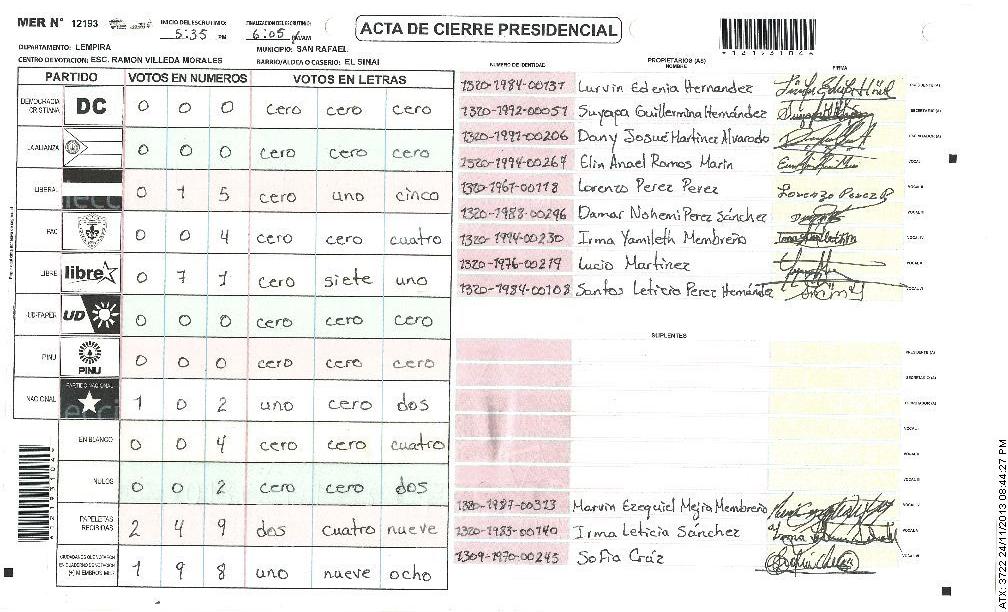 MER N° 12193
INICIO DEL ESCRUTINIO: 5:35 PM
FINALIZACION DEL ESCRUTINIO: 6:05
ACTA DE CIERRE PRESIDENCIAL
DEPARTAMENTO: LEMPIRA
MUNICIPIO: SAN RAFAEL
CENTRO DE VOTACION: ESC. RAMON VILLEDA MORALES
BARRIO/ALDEA O CASERIO: EL SINAI
PARTIDO VOTOS EN NUMEROS VOTOS EN LETRAS
DEMOCRACIA CRISTIANA DC 0 0 0 cero cero cero
LA ALIANZA 0 0 0 cero cero cero
LIBERAL 0 1 5 cero uno cinco
PAC 0 0 4 cero cero cuatro
LIBRE libre 0 7 1 cero siete uno
UD-FAPER UD 0 0 0 cero cero cero
PINU PINU 0 0 0 cero cero cero
NACIONAL PARTIDO NACIONAL 1 0 2 uno cero dos
EN BLANCO 0 0 4 cero cero cuatro
NULOS 0 0 2 cero cero dos
PAPELETAS RECIBIDAS 2 4 9 dos cuatro nueve
CIUDADANOS QUE VOTARON EN CUADERNO DE VOTACION (+) MIEMBROS MER 1 9 8 uno nueve ocho
NUMERO DE IDENTIDAD PROPIETARIOS (AS) NOMBRE FIRMA
1320-1984-00137 Lurvin Edenia Hernandez PRESIDENTE (A)
1320-1992-00057 Suyapa Guillermina Hernández SECRETARIO (A)
1320-1991-00206 Dany Josue Martinez Alvarado ESCRUTADOR (A)
1320-1994-00267 Elin Anael Ramos Marin VOCAL I
1320-1967-00118 Lorenzo Perez Perez Lorenzo Perez P VOCAL II
1320-1988-00296 Damar Nohemi Perez Sánchez VOCAL III
1320-1994-00230 Irma Yamileth Membreño VOCAL IV
1320-1976-00219 Lucio Martinez VOCAL V
1320-1984-00108 Santos Leticia Perez Hernández VOCAL VI
SUPLENTES
PRESIDENTE (A)
SECRETARIO (A)
ESCRUTADOR (A)
VOCAL I
VOCAL II
VOCAL III
1320-1987-00323 Marvin Ezequiel Mejia Membreño
1320-1983-00140 Irma Leticia Sánchez
1309-1970-00245 Sofia Cráz
ATX: 3722 24/11/2013 08:44:27 PM